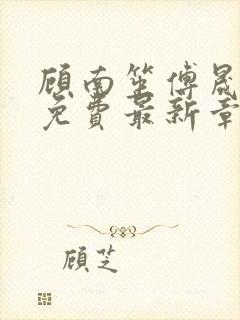 顾南笙傅晟
免费最新章
顾芝